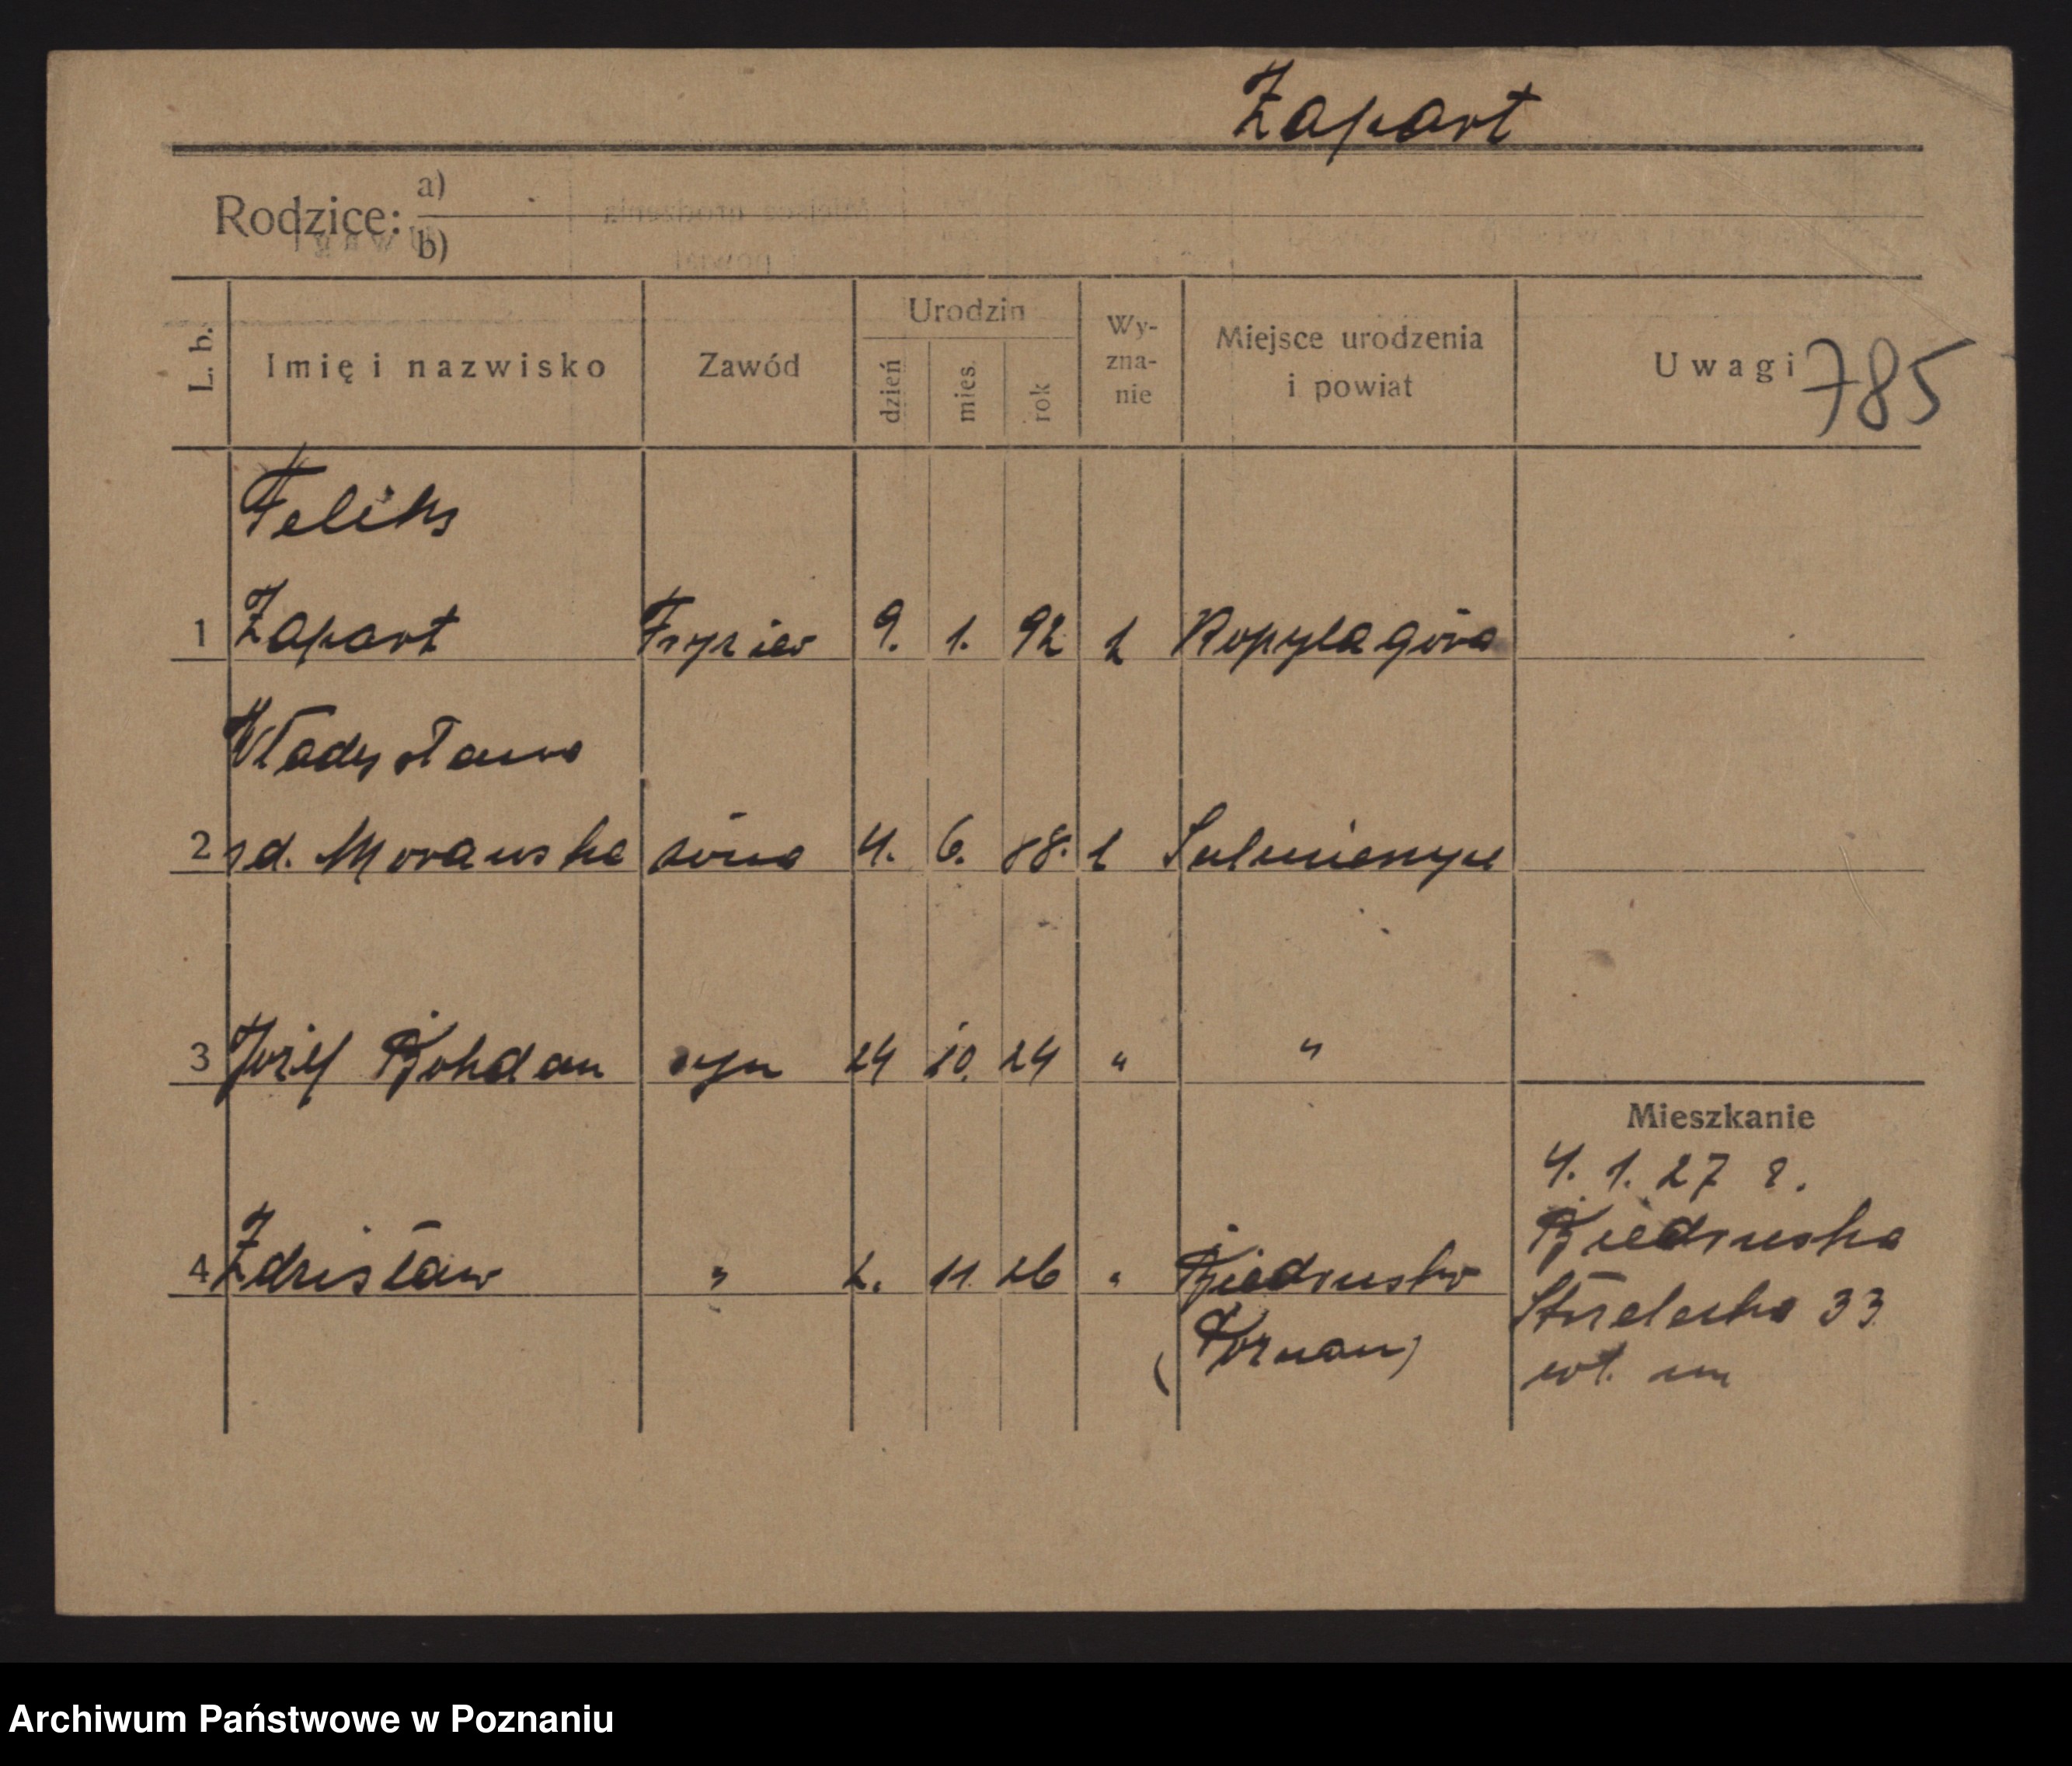 Zapart
Rodzice: a)
b)
L. b. Imię i nazwisko Zawód Urodzin dzień mies. rok Wy-zna-nie Miejsce urodzenia i powiat Uwagi 785
Feliks
1 Zapart Fryzier 9. 1. 92 Kopyla góra
Władysława
2 zd. Morawska żona 4. 6. 88. Sulmierzyce
3 Józef Bohdan syn 24 10. 24 " "
Mieszkanie
4. 1. 27 r.
4 Zdzisław " 2. 11. 26 " Biedrusko
Biedruska
(Poznań)
Strzelecka 33
wł. um
Archiwum Państwowe w Poznaniu